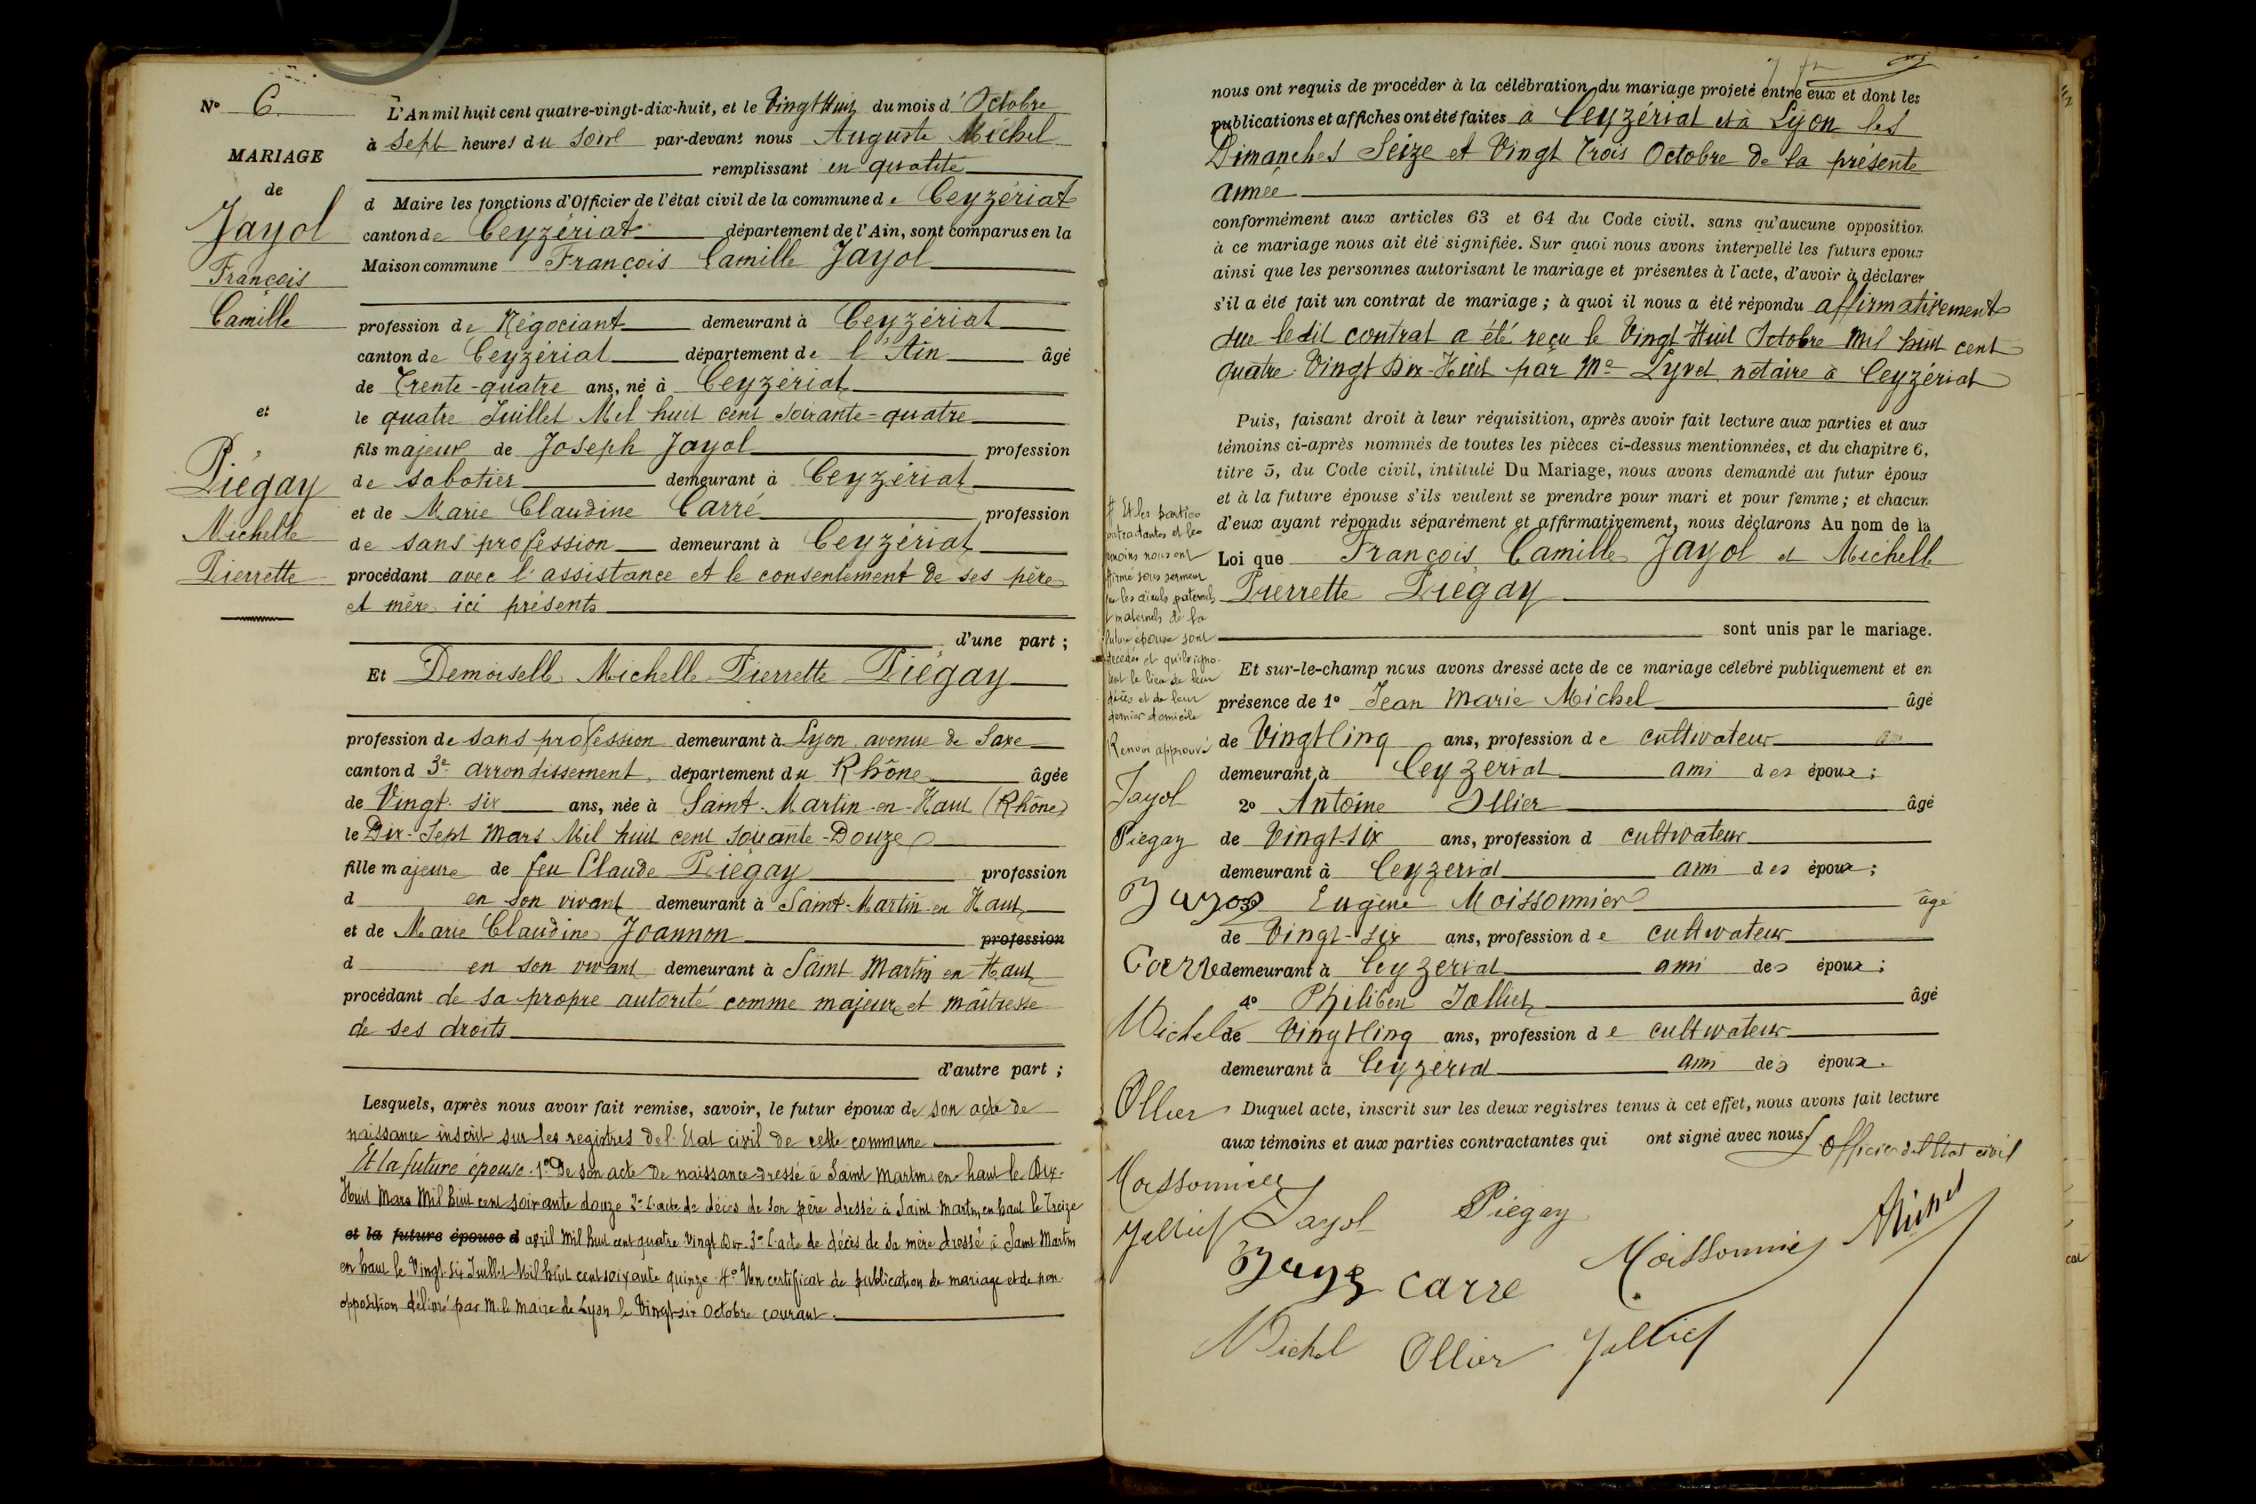 N° 6
MARIAGE
de
Jayol
François
Camille
et
Piégay
Michelle
Pierrette
L'An mil huit cent quatre-vingt-dix-huit, et le Vingt Huit du mois d'Octobre
à Sept heures du soir par-devant nous Auguste Michel
remplissant en qualité
d Maire les fonctions d'Officier de l'état civil de la commune de Ceyzériat
canton de Ceyzériat département de l'Ain, sont comparus en la
Maison commune François Camille Jayol
profession de Négociant demeurant à Ceyzériat
canton de Ceyzériat département de l'Ain âgé
de Trente-quatre ans, né à Ceyzériat
le quatre Juillet Mil huit cent soixante-quatre
fils majeur de Joseph Jayol profession
de sabotier demeurant à Ceyzériat
et de Marie Claudine Carré profession
de sans profession demeurant à Ceyzériat
procédant avec l'assistance et le consentement de ses père
et mère ici présents
d'une part ;
Et Demoiselle Michelle Pierrette Piégay
profession de sans profession demeurant à Lyon avenue de Saxe
canton d 3e arrondissement département du Rhône âgée
de Vingt-six ans, née à Saint-Martin-en-Haut (Rhône)
le Dix-Sept Mars Mil huit cent soixante-Douze
fille majeure de feu Claude Piégay profession
d en son vivant demeurant à Saint-Martin en Haut
et de Marie Claudine Joannon profession
d en son vivant demeurant à Saint Martin en Haut
procédant de sa propre autorité comme majeure et maîtresse
de ses droits
d'autre part ;
Lesquels, après nous avoir fait remise, savoir, le futur époux de son acte de
naissance inscrit sur les registres de l'Etat civil de cette commune
Et la future épouse. 1° De son acte de naissance dressé à Saint Martin en haut le Dix-
Huit Mars Mil huit cent soixante douze 2° L'acte de décès de son père dressé à Saint Martin en haut le Treize
et la future épouse d april Mil huit cent quatre vingt Dix. 3° L'acte de décès de sa mère dressé à Saint Martin
en haut le Vingt-six Juillet Mil huit cent soixante quinze. 4° Un certificat de publication de mariage et de non
opposition délivré par M. le Maire de Lyon le Vingt-six Octobre courant.
nous ont requis de procéder à la célébration du mariage projeté entre eux et dont les
publications et affiches ont été faites à Ceyzériat et à Lyon les
Dimanches Seize et Vingt Trois Octobre de la présente
année
conformément aux articles 63 et 64 du Code civil, sans qu'aucune opposition
à ce mariage nous ait été signifiée. Sur quoi nous avons interpellé les futurs époux
ainsi que les personnes autorisant le mariage et présentes à l'acte, d'avoir à déclarer
s'il a été fait un contrat de mariage ; à quoi il nous a été répondu affirmativement
que ledit contrat a été reçu le Vingt-Huit Octobre Mil huit cent
quatre Vingt Dix-Huit par Me Lyvet notaire à Ceyzériat
Puis, faisant droit à leur réquisition, après avoir fait lecture aux parties et aux
témoins ci-après nommés de toutes les pièces ci-dessus mentionnées, et du chapitre 6,
titre 5, du Code civil, intitulé Du Mariage, nous avons demandé au futur époux
et à la future épouse s'ils veulent se prendre pour mari et pour femme ; et chacun
d'eux ayant répondu séparément et affirmativement, nous déclarons Au nom de la
Loi que François Camille Jayol et Michelle
Pierrette Piégay
sont unis par le mariage.
Et sur-le-champ nous avons dressé acte de ce mariage célébré publiquement et en
présence de 1° Jean Marie Michel âgé
de Vingt Cinq ans, profession de cultivateur
demeurant à Ceyzériat ami des époux ;
2° Antoine Ollier âgé
de Vingt-six ans, profession d cultivateur
demeurant à Ceyzériat ami des époux ;
Eugène Moissonnier âgé
de Vingt-six ans, profession de cultivateur
demeurant à Ceyzériat ami des époux ;
4° Philibert Jalliet âgé
de Vingt Cinq ans, profession de cultivateur
demeurant à Ceyzériat ami des époux.
Duquel acte, inscrit sur les deux registres tenus à cet effet, nous avons fait lecture
aux témoins et aux parties contractantes qui ont signé avec nous Officier de l'Etat civil
# Et les parties
contractantes et les
témoins nous ont
affirmé sous serment
que les aïeuls paternels
et maternels de la
future épouse sont
décédés et qu'ils igno-
rent le lieu de leur
décès et de leur
dernier domicile
Renvoi approuvé
Jayol
Piégay
Carre
Michel
Ollier
Moissonnier
Jalliet Jayol Piégay
Moissonnier Michel
Carre
Michel Ollier Jalliet